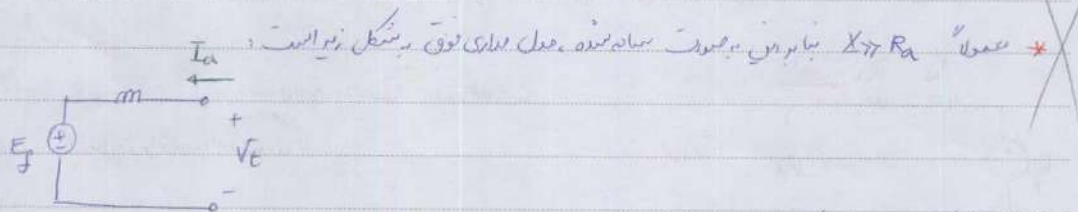 * معمولاً X >> Ra بنابراین به صورت ساده شده، مدل مداری فوق به شکل زیر است :
Ia
+
Ef
Vt
-